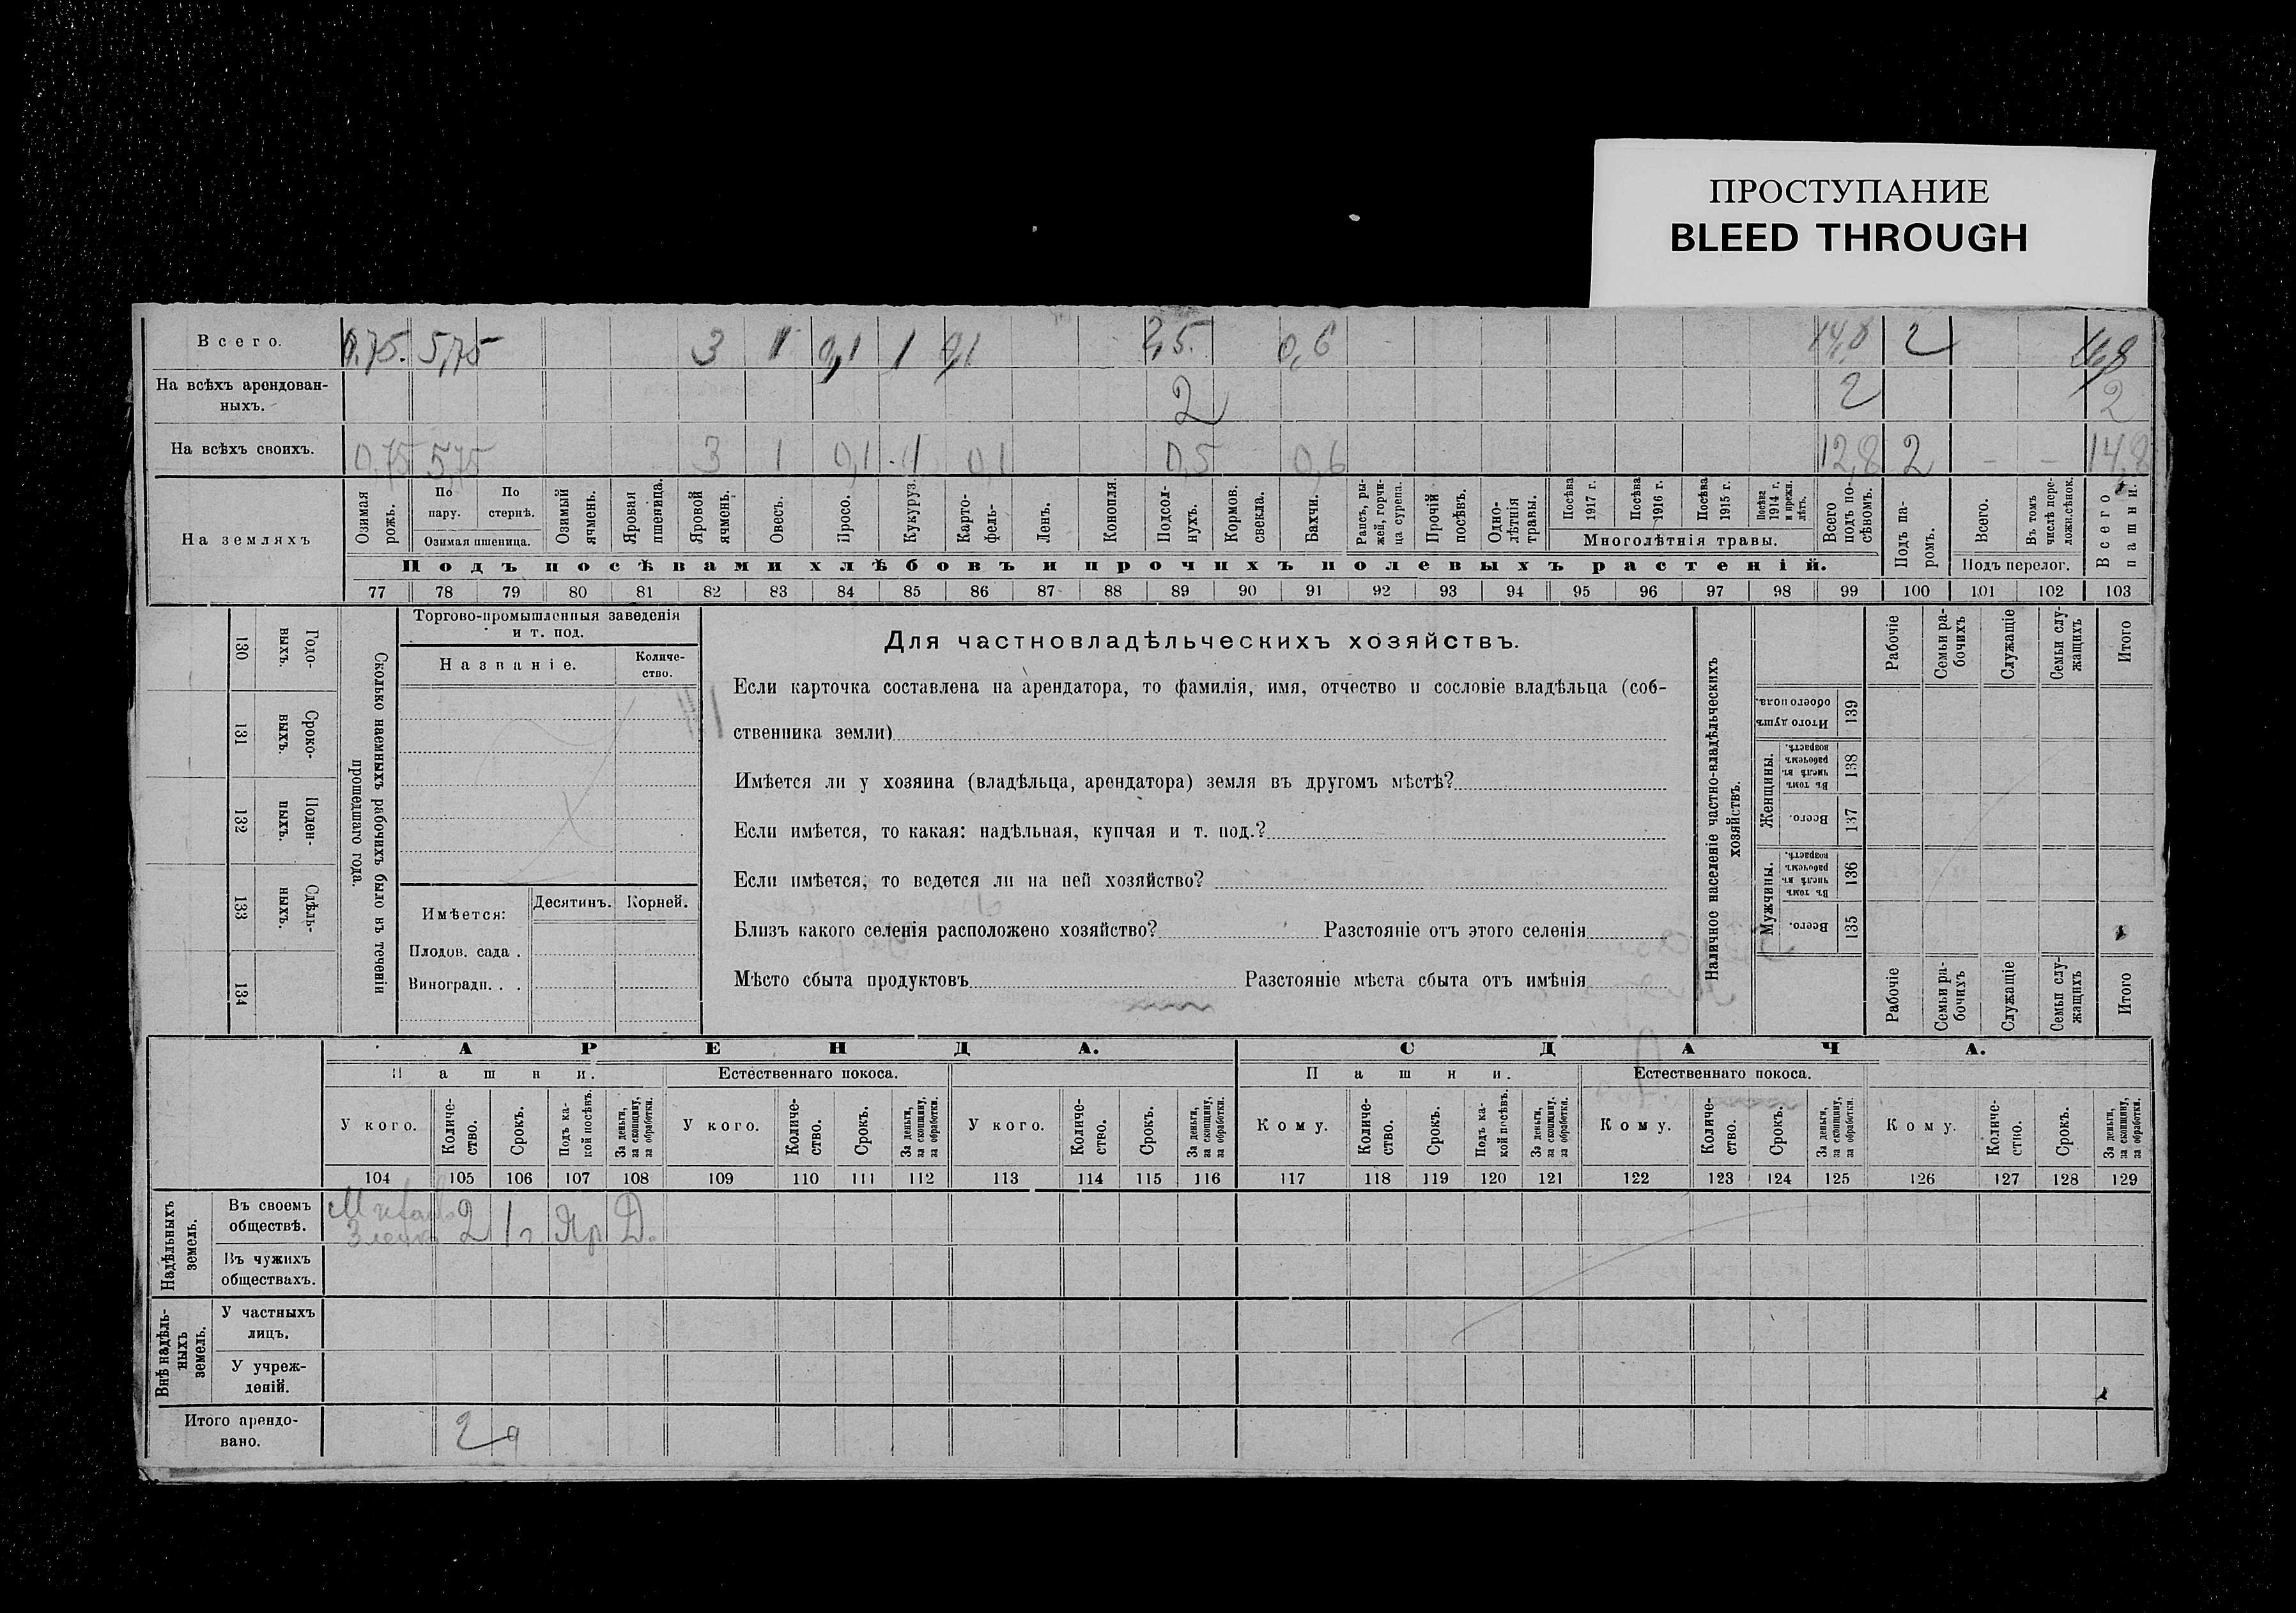 ПРОСТУПАНИЕ
BLEED THROUGH
Всего. 0.75. 5,75 3 1 0,1 1 0,1 2,5. 0,6 14,8 2 16,8
На всѣхъ арендован-
ныхъ. 2 2 2
На всѣхъ своихъ. 0.75 5,75 3 1 0,1 1 0,1 0,5 0,6 12,8 2 – – 14,8
На земляхъ
Озимая рожь.
По пару.
По стернѣ.
Озимая пшеница.
Озимый ячмень.
Яровая пшеница.
Яровой ячмень.
Овесъ.
Просо.
Кукуруз.
Карто-
фель-
Ленъ.
Конопля.
Подсол-
нухъ.
Кормов. свекла.
Бахчи.
Рапсъ, ры-
жей, горчи-
ца сурепа.
Прочій посѣвъ.
Одно-
лѣтнія травы.
Посѣва 1917 г.
Посѣва 1916 г.
Посѣва 1915 г.
Посѣва 1914 г. и прежн. лѣтъ.
Многолѣтнія травы.
Всего подъ по-
сѣвомъ.
Подъ па-
ромъ.
Всего.
Въ томъ числѣ пере-
ложн.сѣнок.
Подъ перелог.
Всего пашни.
Подъ посѣвами хлѣбовъ и прочихъ полевыхъ растеній.
77 78 79 80 81 82 83 84 85 86 87 88 89 90 91 92 93 94 95 96 97 98 99 100 101 102 103
130 Годо-
выхъ.
131 Сроко-
выхъ.
132 Поден-
ныхъ.
133 Сдѣль-
ныхъ.
134
Сколько наемныхъ рабочихъ было въ теченіи
прошедшаго года.
Торгово-промышленныя заведенія
и т. под.
Названіе.
Количе-
ство.
Имѣется:
Десятинъ.
Корней.
Плодов. сада .
Виноградн. . .
Для частновладѣльческихъ хозяйствъ.
Если карточка составлена на арендатора, то фамилія, имя, отчество и сословіе владѣльца (соб-
ственника земли)
Имѣется ли у хозяина (владѣльца, арендатора) земля въ другомъ мѣстѣ?
Если имѣется, то какая: надѣльная, купчая и т. под.?
Если имѣется, то ведется ли на ней хозяйство?
Близъ какого селенія расположено хозяйство? Разстояніе отъ этого селенія
Мѣсто сбыта продуктовъ Разстояніе мѣста сбыта отъ имѣнія
Наличное населеніе частно-владѣльческихъ
хозяйствъ.
Рабочіе
Семьи ра-
бочихъ
Служащіе
Семьи слу-
жащихъ
Итого
Итого душъ обоего пола. 139
Женщины.
Въ томъ числѣ въ рабочемъ возрастѣ. 138
Всего. 137
Мужчины.
Въ томъ числѣ въ рабочемъ возрастѣ. 136
Всего. 135
Рабочіе
Семьи ра-
бочихъ
Служащіе
Семьи слу-
жащихъ
Итого
АРЕНДА. СДАЧА.
Пашни. Естественнаго покоса. Пашни. Естественнаго покоса.
У кого.
Количе-
ство.
Срокъ.
Подъ ка-
кой посѣвъ.
За деньги, за скопщину, за обработки.
У кого.
Количе-
ство.
Срокъ.
За деньги, за скопщину, за обработки.
У кого.
Количе-
ство.
Срокъ.
За деньги, за скопщину, за обработки.
Кому.
Количе-
ство.
Срокъ.
Подъ ка-
кой посѣвъ.
За деньги, за скопщину, за обработки.
Кому.
Количе-
ство.
Срокъ.
За деньги, за скопщину, за обработки.
Кому.
Количе-
ство.
Срокъ.
За деньги, за скопщину, за обработки.
104 105 106 107 108 109 110 111 112 113 114 115 116 117 118 119 120 121 122 123 124 125 126 127 128 129
Надѣльныхъ земель.
Въ своемъ
обществѣ. 2 1 г. Яр Д.
Въ чужихъ
обществахъ.
Внѣ надѣль-
ныхъ земель.
У частныхъ
лицъ.
У учреж-
деній.
Итого арендо-
вано. 2